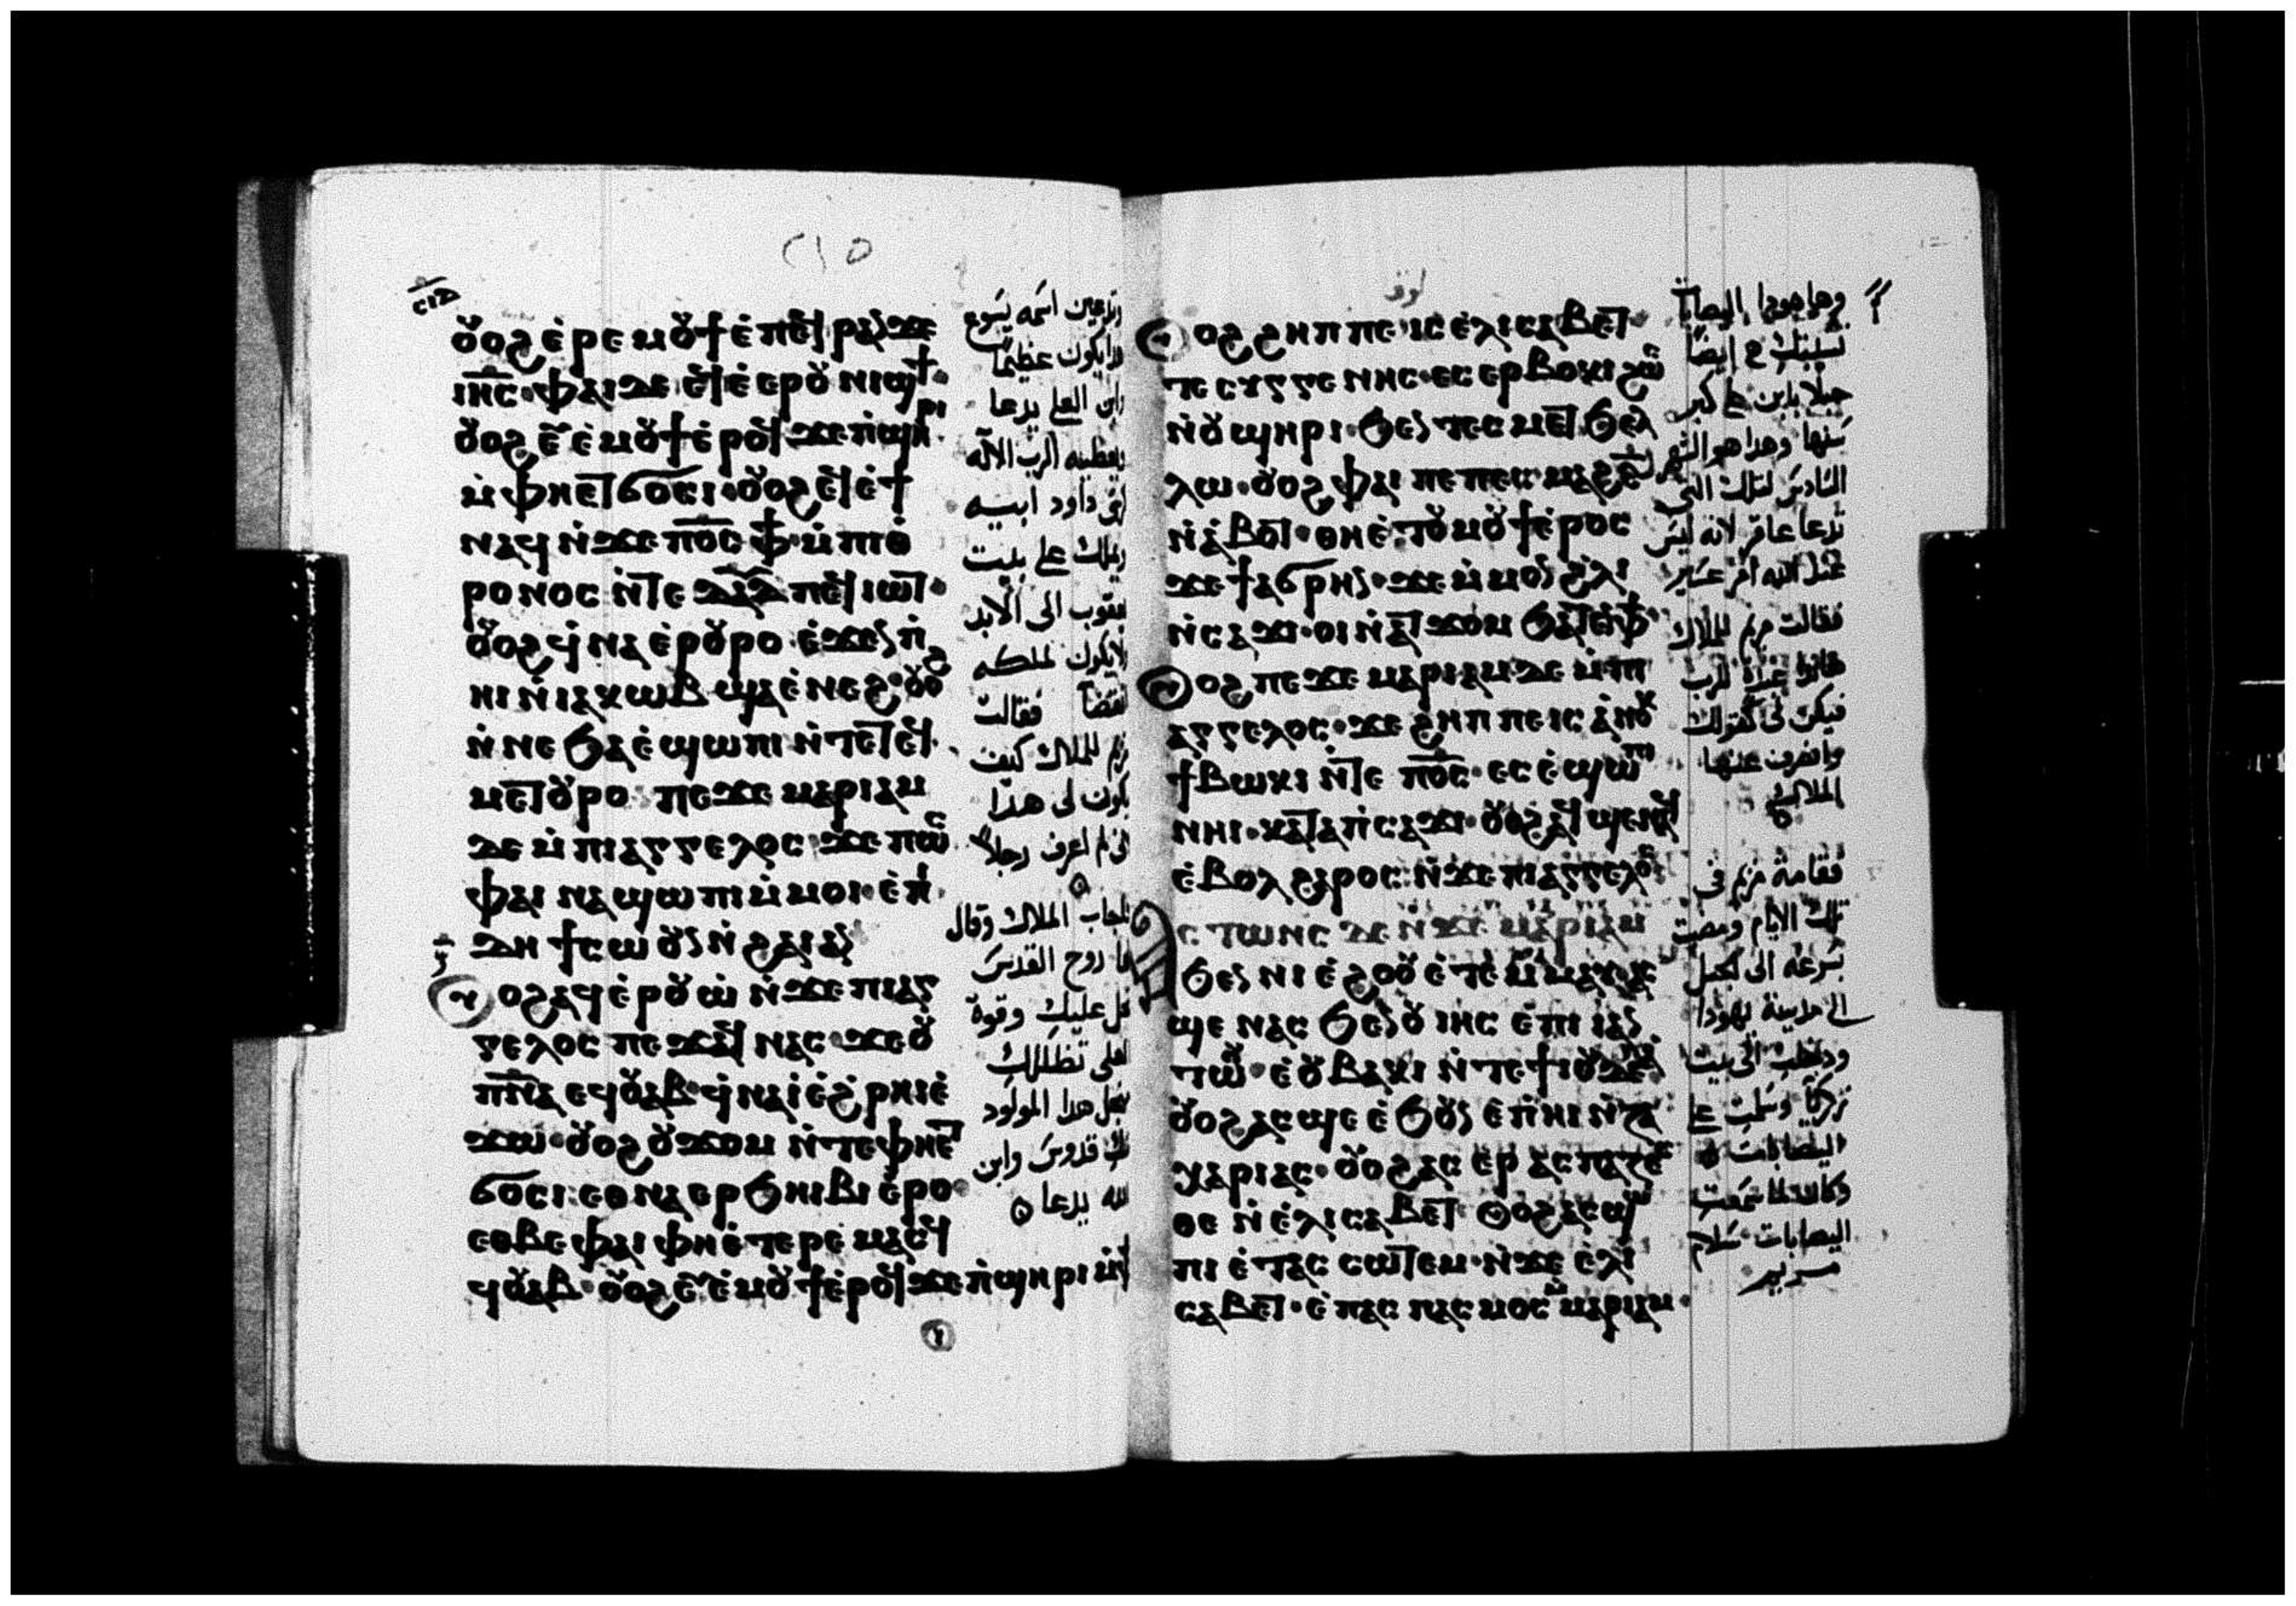 ⲟ̆ⲟϩ ⲉ̀ⲣⲉ ⲙⲟ̆ϯ ⲉ̀ⲡⲉϥ ⲣⲁⲛ ϫⲉ
ⲓⲏ̅ⲥ̅· ⲫⲁⲓ ϫⲉ ⲉϥⲉ̀ⲉⲣⲟ̆ ⲛⲓϣϯ·
ⲟ̆ⲟϩ ⲉⲩ̅ⲉ̀ⲙⲟ̆ϯ ⲉ̀ⲣⲟϥ ϫⲉ ⲡ̀ϣⲏⲣⲓ
ⲙ̀ⲫⲏⲉⲧϭⲟⲥⲓ· ⲟ̆ⲟϩ ⲉϥⲉ̀ϯ
ⲛⲁϥ ⲛ̀ϫⲉ ⲡⲟ̅ⲥ̅ ⲫϯ· ⲙ̀ⲡⲓⲑ̀
ⲣⲟⲛⲟⲥ ⲛ̀ⲧⲉ ⲇⲁⲇ ⲡⲉϥⲓⲱⲧ·
ⲟ̆ⲟϩ ϥ̀ⲛⲁⲉ̀ⲣⲟ̆ⲣⲟ ⲉ̀ϫⲉⲛ ⲡ̀
ⲏⲓ ⲛ̀ⲓⲁⲕⲱⲃ ϣⲁⲉ̀ⲛⲉϩ· ⲟ̆ⲟϩ
ⲛ̀ⲛⲉ ϧⲁⲉ̀ ϣⲱⲡⲓ ⲛ̀ⲧⲉ ⲧⲉϥ
ⲙⲉⲧⲟ̆ⲣⲟ ⲡⲉϫⲉ ⲙⲁⲣⲓⲁⲙ
ⲇⲉ ⲙ̀ⲡⲓⲁⲅⲅⲉⲗⲟⲥ ϫⲉ ⲡⲱⲥ
ⲫⲁⲓ ⲛⲁϣⲱⲡⲓ ⲙ̀ⲙⲟⲓ· ⲉ̀ⲡⲓ
ⲇⲏ ϯⲥⲱⲟ̆ⲛ ⲛ̀ϩⲁⲓ ⲁⲛ
ⲟ̆ⲟϩ ⲁϥⲉ̀ⲣⲟ̆ⲱ̀ ⲛ̀ϫⲉ ⲡⲓⲁⲅ
ⲅⲉⲗⲟⲥ ⲡⲉϫⲁϥ ⲛⲁⲥ ϫⲉ ⲟ̆
ⲡ̅ⲛ̅ⲁ̅ ⲉϥⲟ̆ⲁⲃ ϥ̀ⲛⲁⲓ̀ ⲉ̀ϩ̀ⲣⲏⲓ ⲉ̀
ϫⲱ· ⲟ̆ⲟϩ ⲟ̆ϫⲟⲙ ⲛ̀ⲧⲉ ⲫⲏⲉⲧ
ϭⲟⲥⲓ· ⲉⲑⲛⲁⲉⲣϧⲏⲓⲃⲓ ⲉ̀ⲣⲟ·
ⲉⲑⲃⲉ ⲫⲁⲓ ⲫⲏ ⲉ̀ⲧⲉⲣⲉ ⲙⲁⲥϥ
ϥⲟ̆ⲁⲃ· ⲟ̆ⲟϩ ⲉⲩ̅ⲉ̀ⲙⲟ̆ϯ ⲉ̀ⲣⲟϥ ϫⲉ ⲡ̀ϣⲏⲣⲓ ⲙ̀ⲫϯ
وتدعين اسمه يسوع
هذا يكون عظيمًا
وابن العلي يدعا
ويعطيه الرب الاله
كرسي داود ابيه
ويملك على بيت
يعقوب الى الابد
ولا يكون لملكه
انقضا فقالت
مريم للملاك كيف
يكون لى هذا
انى لم اعرف رجلاً
فاجاب الملاك وقال
لها روح القدس
تحل عليك وقوة
العلى تظللك
المولود
منك قدوس وابن
الله يدعا
لوقا
ⲟ̆ⲟϩ ϩⲏⲡⲡⲉ ⲓⲥ ⲉ̀ⲗⲓⲥⲁⲃⲉⲧ·
ⲧⲉ ⲥⲩⲅⲅⲉⲛⲏⲥ· ⲉⲥⲉⲣⲃⲟⲕⲓ ϩⲱⲥ
ⲛ̀ⲟ̆ϣⲏⲣⲓ· ϧⲉⲛ ⲧⲉⲥ ⲙⲉⲧϧⲉⲗ
ⲗⲱ· ⲟ̆ⲟϩ ⲫⲁⲓ ⲡⲉ ⲡⲉⲥ ⲙⲁϩⲋ
ⲛ̀ⲁ̀ⲃⲟⲧ· ⲑⲏ ⲉ̀ⲧⲟ̆ⲙⲟ̆ϯ ⲉ̀ⲣⲟⲥ
ϫⲉ ϯⲁϭⲣⲏⲛ· ϫⲉ ⲙ̀ⲙⲟⲛ ϩ̀ⲗⲓ
ⲛ̀ⲥⲁϫⲓ· ⲟⲓ ⲛ̀ⲁⲧϫⲟⲙ ϧⲁⲧⲉⲛⲫϯ·
ⲟ̆ⲟϩ ⲡⲉϫⲉ ⲙⲁⲣⲓⲁⲙ ⲇⲉ ⲙ̀ⲡⲓ
ⲁⲅⲅⲉⲗⲟⲥ· ϫⲉ ϩⲏⲡⲡⲉ ⲓⲥ ⲁ̀ⲛⲟⲕ
ϯⲃⲱⲕⲓ ⲛ̀ⲧⲉ ⲡⲟ̅ⲥ̅· ⲉⲥⲉ̀ϣⲱⲡⲓ
ⲛⲏⲓ· ⲕⲁⲧⲁ ⲡ̀ⲥⲁϫⲓ· ⲟ̆ⲟϩ ⲁϥϣⲉⲛⲁϥ
ⲉ̀ⲃⲟⲗ ϩⲁⲣⲟⲥ: ⲛ̀ϫⲉ ⲡⲓⲁⲅⲅⲉⲗⲟⲥ
ⲁⲥⲧⲱⲛⲥ ⲇⲉ ⲛ̀ϫⲉ ⲙⲁⲣⲓⲁⲙ
ϧⲉⲛ ⲛⲓⲉ̀ϩⲟⲟ̆ ⲉ̀ⲧⲉ̀ⲙ̀ⲙⲁⲩ ⲁⲥ
ϣⲉ ⲛⲁⲥ ϧⲉⲛ ⲟ̆ⲓⲏⲥ ⲉ̀ⲡⲓ ⲁⲛ
ⲧⲱⲟ̆· ⲉ̀ⲟ̆ⲃⲁⲕⲓ ⲛ̀ⲧⲉ ϯⲓⲟ̆ⲇⲉⲁ
ⲟ̆ⲟϩ ⲁⲥϣⲉ ⲉ̀ϧⲟ̆ⲛ ⲉ̀ⲡ̀ⲏⲓ ⲛ̀ⲍⲁ
ⲭⲁⲣⲓⲁⲥ· ⲟ̆ⲟϩ ⲁⲥⲉⲣⲁⲥⲡⲁⲍⲉ
ⲑⲉ ⲛ̀ⲉ̀ⲗⲓⲥⲁⲃⲉⲧ ⲟ̆ⲟϩ ⲁⲥϣⲱ
ⲡⲓ ⲉ̀ⲧⲁⲥ ⲥⲱⲧⲉⲙ· ⲛ̀ϫⲉ ⲉ̀ⲗⲓ
ⲥⲁⲃⲉⲧ· ⲉ̀ⲡⲁⲥⲡⲁⲥⲙⲟⲥ ⲙ̀ⲙⲁⲣⲓⲁⲙ·
وها هوذا اليصابات
نسيبتك هى ايضًا
حبلا بابن على كبر
سنها وهذا هو الشهر
السادس لتلك التى
تدعا عاقر لانه ليس
عند الله امر عسير
فقالت مريم للملاك
هانذا عبدة للرب
فيكن لى كقولك
وانصرف عنها
الملاك
فقامة مريم فى
تلك الايام ومضت
بسرعه الى الجبل
الى مدينة يهودا
ودخلت الى بيت
زكريا وسلمت على
اليصابات
وكان لما سمعت
اليصابات سلام
مريم